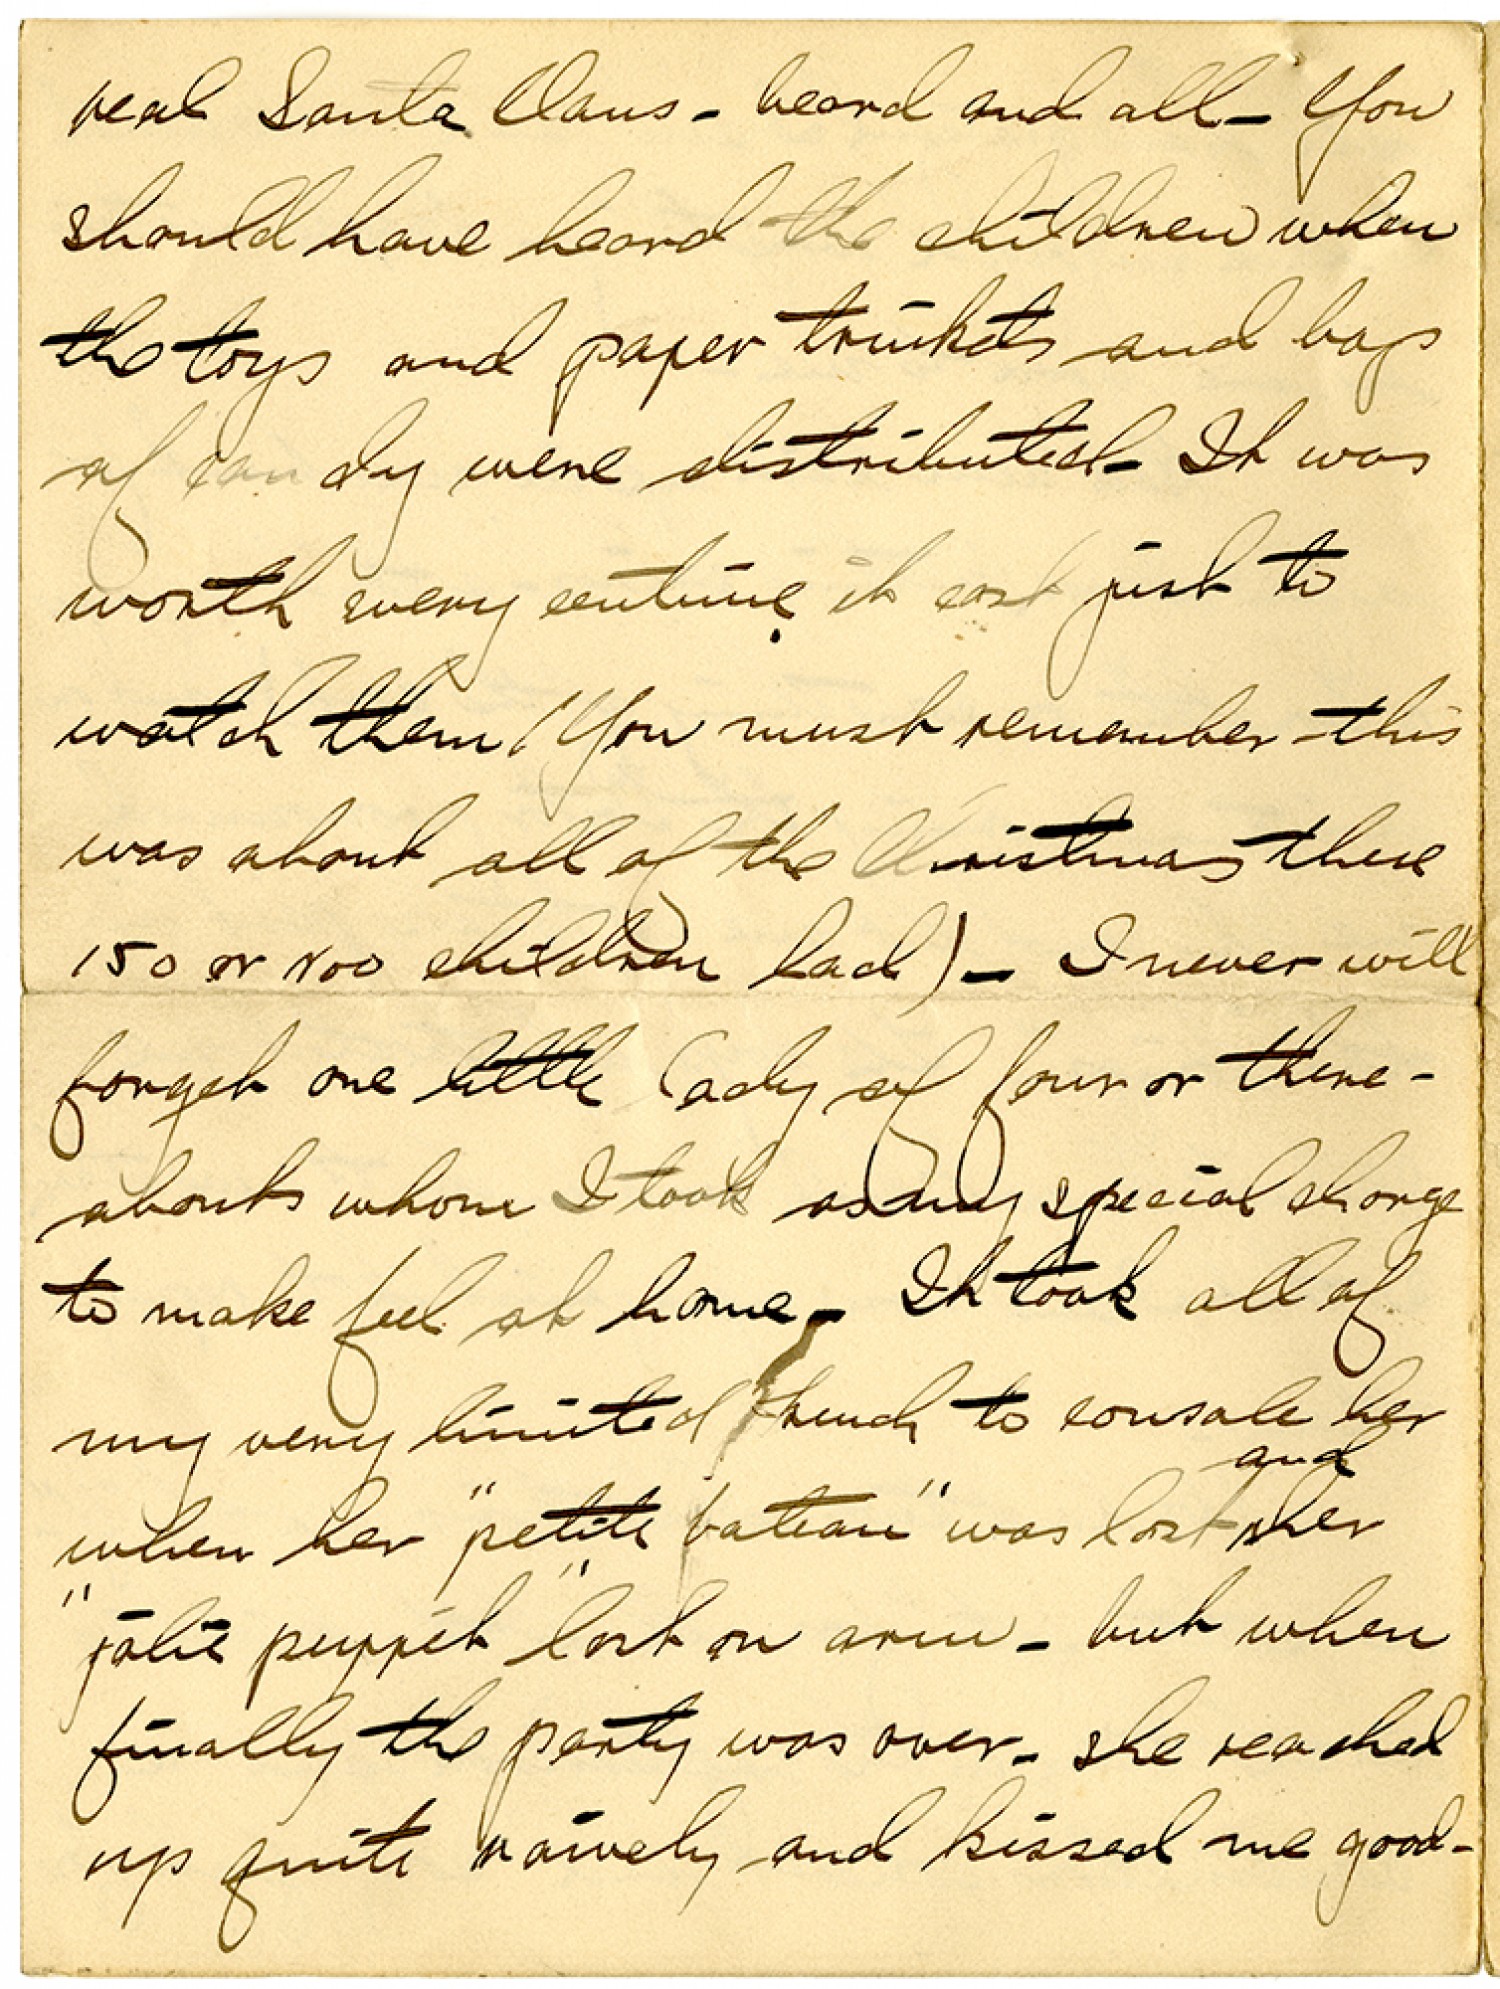 real Santa Claus - beard and all - You
should have heard the children when
the toys and paper trinkets and bags
of candy were distributed - It was
worth every centime it cost just to
watch them (You must remember - this
was about all of the Christmas these
150 or 200 children had) - I never will
forget one little lady of four or there-
abouts whom I took as my special charge
to make feel at home - It took all of
my very limited French to console her
and
when her "petite bateau" was lost her
"jolie puppet" lost an arm - but when
finally the party was over - she reached
up quite naively and kissed me good-